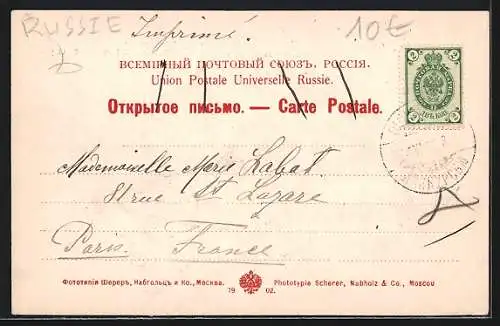 RUSSIE
10€
Imprimé
ВСЕМІРНЫЙ ПОЧТОВЫЙ СОЮЗЪ. РОССІЯ.
Union Postale Universelle Russie.
Открытое письмо. — Carte Postale.
2 2
2 ДВѢ КОП. 2
Mademoiselle Marie Labat
St Lazare
Paris France
Фототипія Шереръ, Набгольцъ и Ко., Москва. 1902. Phototypie Scherer, Nabholz & Co., Moscou